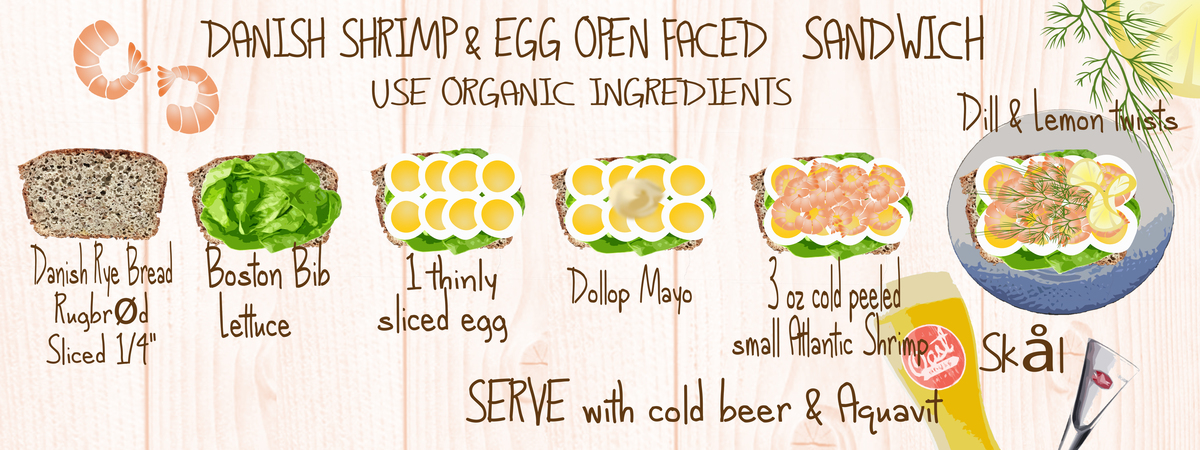 DANISH SHRIMP & EGG OPEN FACED SANDWICH
USE ORGANIC INGREDIENTS
Dill & Lemon twists
Danish Rye Bread
RugbrØd
Sliced 1/4"
Boston Bib
Lettuce
1 thinly
sliced egg
Dollop Mayo
3 oz cold peeled
small Atlantic Shrimp
Skål
SERVE with cold beer & Aquavit